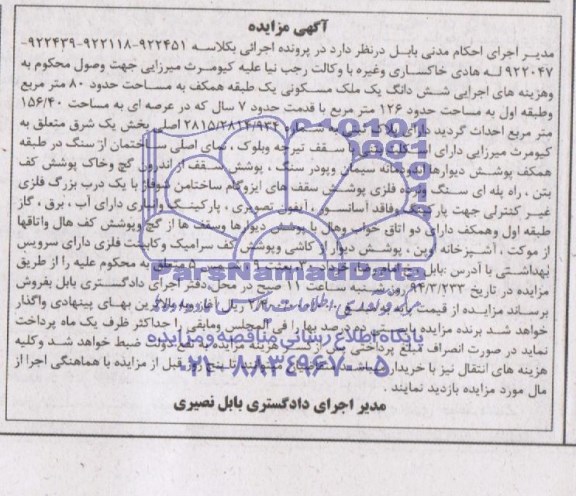 آگهی مزایده
مدیر اجرای احکام مدنی بابل درنظر دارد در پرونده اجرائی بکلاسه ۹۲۲۴۵۱-۹۲۲۱۱۸-۹۲۲۴۳۹-
۹۲۲۰۴۷ له هادی خاکساری وغیره با وکالت رجب نیا علیه کیومرث میرزایی جهت وصول محکوم به
وهزینه های اجرایی شش دانگ یک ملک مسکونی یک طبقه همکف به مساحت حدود ۸۰ متر مربع
وطبقه اول به مساحت حدود ۱۲۶ متر مربع با قدمت حدود ۷ سال که در عرصه ای به مساحت ۱۵۶/۴۰
متر مربع احداث گردید دارای پلاک ثبتی به شماره ۲۸۱۵/۲۸۱۴/۹۳۴ اصلی بخش یک شرق متعلق به
کیومرث میرزایی دارای اسکلت سقف تیرچه وبلوک ، نمای اصلی ساختمان از سنگ در طبقه
همکف پوشش دیوارها آشپزخانه سیمان وپودر سنگ ، پوشش سقف از اندرون گچ وخاک پوشش کف
بتن ، راه پله ای سنگ ونرده فلزی پوشش سقف های ایزوگام ساختامن شوفاژ با یک درب بزرگ فلزی
غیر کنترلی جهت پارکینگ وفاقد آسانسور ، آیفون تصویری ، پارکینگ وانباری دارای آب ، برق ، گاز
طبقه اول وهمکف دارای دو اتاق خواب وهال با پوشش دیوارها وسقف ها از گچ وپوشش کف هال واتاقها
از موکت ، آشپزخانه اوپن ، پوشش دیوار از کاشی وپوشش کف سرامیک وکابینت فلزی دارای سرویس
بهداشتی با آدرس :بابل متعلق به محکوم علیه را از طریق
مزایده در تاریخ ۹۴/۳/۲۳۳ روز شنبه ساعت ۱۱ صبح در محل دفتر اجرای دادگستری بابل بفروش
برساند مزایده از قیمت پایه ریال آغاز وبه بالاترین بهای پیشنهادی واگذار
خواهد شد برنده مزایده بایستی ده درصد بها را فی المجلس ومابقی را حداکثر ظرف یک ماه پرداخت
نماید در صورت انصراف مبلغ پرداختی پس از کسر هزینه مزایده بنفع دولت ضبط خواهد شد وکلیه
هزینه های انتقال نیز با خریدار میباشد پنج روز قبل از مزایده با هماهنگی اجرا از
مال مورد مزایده بازدید نمایند .
مدیر اجرای دادگستری بابل نصیری
ParsNamadData
پایگاه اطلاع رسانی مناقصه ومزایده
۰۲۱-۸۸۳۴۹۶۷۰-۵